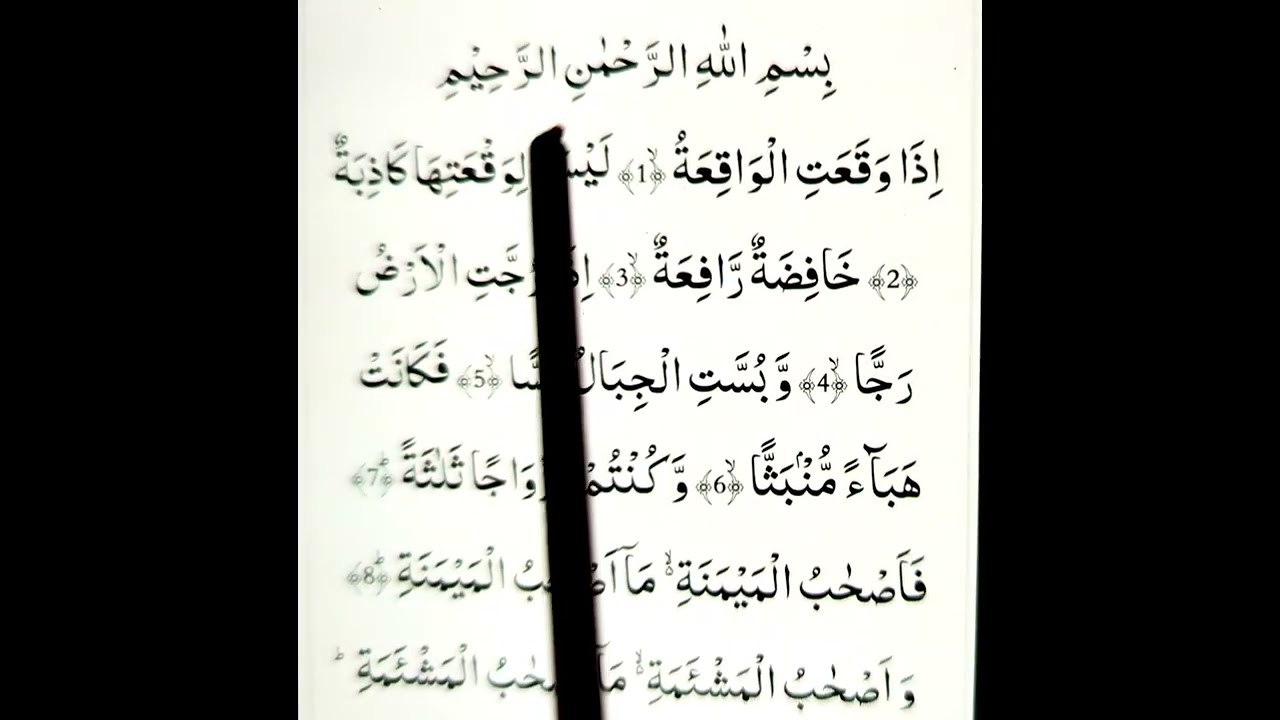 بِسْمِ اللهِ الرَّحْمٰنِ الرَّحِيْمِ
اِذَا وَقَعَتِ الْوَاقِعَةُ ﴿1﴾ۙ لَيْسَ لِوَقْعَتِهَا كَاذِبَةٌ
﴿2﴾ خَافِضَةٌ رَّافِعَةٌ ﴿3﴾ۙ اِذَا رُجَّتِ الْاَرْضُ
رَجًّا ﴿4﴾ۙ وَّ بُسَّتِ الْجِبَالُ بَسًّا ﴿5﴾ۙ فَكَانَتْ
هَبَآءً مُّنْۢبَثًّا ﴿6﴾ۙ وَّ كُنْتُمْ اَزْوَاجًا ثَلٰثَةً ﴿7﴾ؕ
فَاَصْحٰبُ الْمَيْمَنَةِ ۬ۙ مَاۤ اَصْحٰبُ الْمَيْمَنَةِ ﴿8﴾ؕ
وَ اَصْحٰبُ الْمَشْـَٔمَةِ ۬ۙ مَاۤ اَصْحٰبُ الْمَشْـَٔمَةِ ؕ